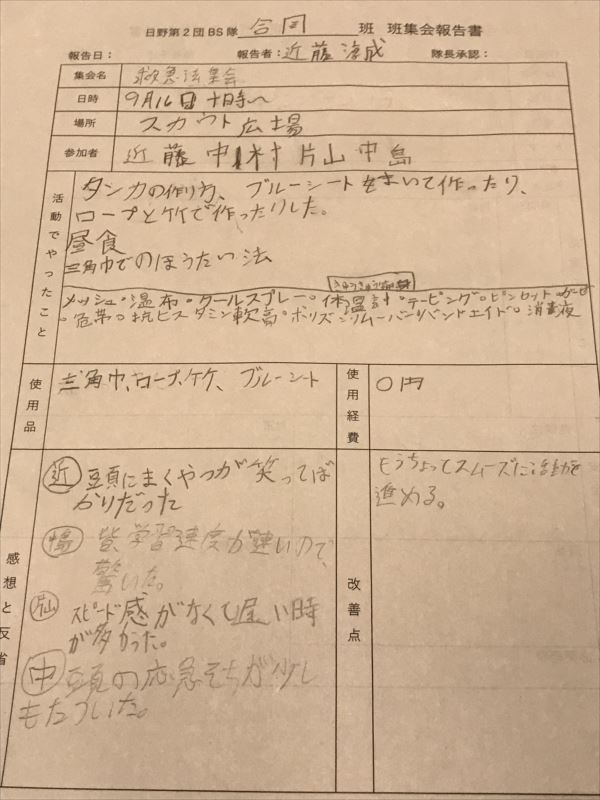 日野第2団BS隊 合同 班 班集会報告書
報告日: 報告者:近藤 隊長承認:
集会名 救急法集会
日時 9月16日 十時〜
場所 スカウト広場
参加者 近藤 中村 片山 中島
活動でやったこと
タンカの作り方、ブルーシートをまいて作ったり、
ロープと竹で作ったりした。
昼食
三角巾でのほうたい法
メッシュ・温布・クールスプレー・体温計・テーピング・ピンセット・ガーゼ
・抗ヒスタミン軟膏・ポイズンリムーバー・バンドエイド・消毒液
使用品 三角巾、ロープ、竹、ブルーシート
使用経費 0円
感想と反省
近 頭にまくやつが笑ってば
かりだった
皆、学習速度が速いので、
驚いた。
片山 スピード感がなくて遅い時
が多かった。
中 頭の応急そちが少し
もたついた。
改善点
もうちょってスムーズに活動を
進める。